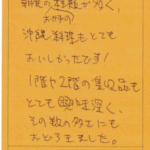 朝食の種類が多く、
お好みの
沖縄料理もとても
おいしかったです!
1階や2階の集収品も
とても興味深く、
その数の多さにも
おどろきました。